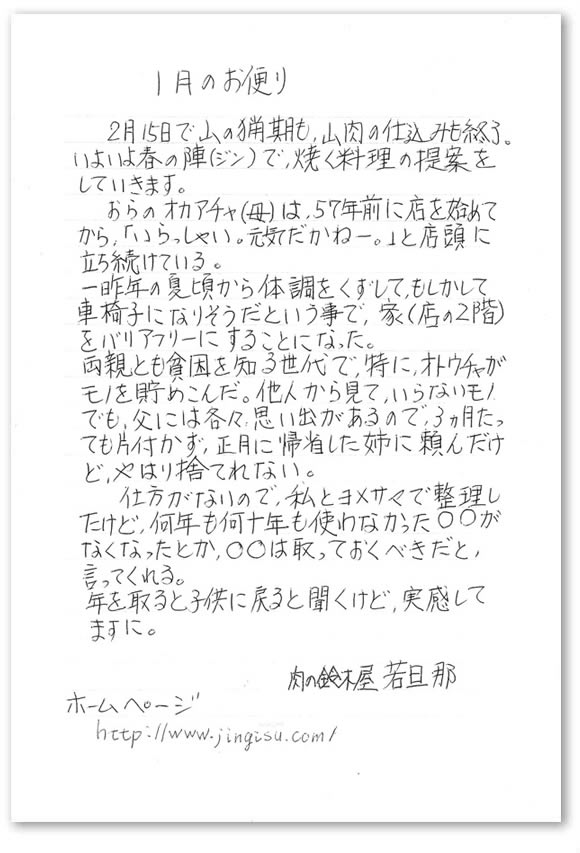 1月のお便り
2月15日で山の猟期も、山肉の仕込みも終了。
いよいよ春の陣(ジン)で、焼く料理の提案を
していきます。
おらのオカアチャ(母)は、57年前に店を始めて
から、「いらっしゃい。元気だかねー。」と店頭に
立ち続けている。
一昨年の夏頃から体調をくずして、もしかして
車椅子になりそうだという事で、家(店の2階)
をバリアフリーにすることになった。
両親とも貧困を知る世代で、特に、オトウチャが
モノを貯めこんだ。他人から見て、いらないモノ
でも、父には各々思い出があるので、3ヵ月たっ
ても片付かず、正月に帰省した姉に頼んだけ
ど、やはり捨てれない。
仕方がないので、私とヨメサマで整理し
たけど、何年も何十年も使わなかった〇〇が
なくなったとか、〇〇は取っておくべきだと、
言ってくれる。
年を取ると子供に戻ると聞くけど、実感して
ますに。
肉の鈴木屋 若旦那
ホームページ
http://www.jingisu.com/